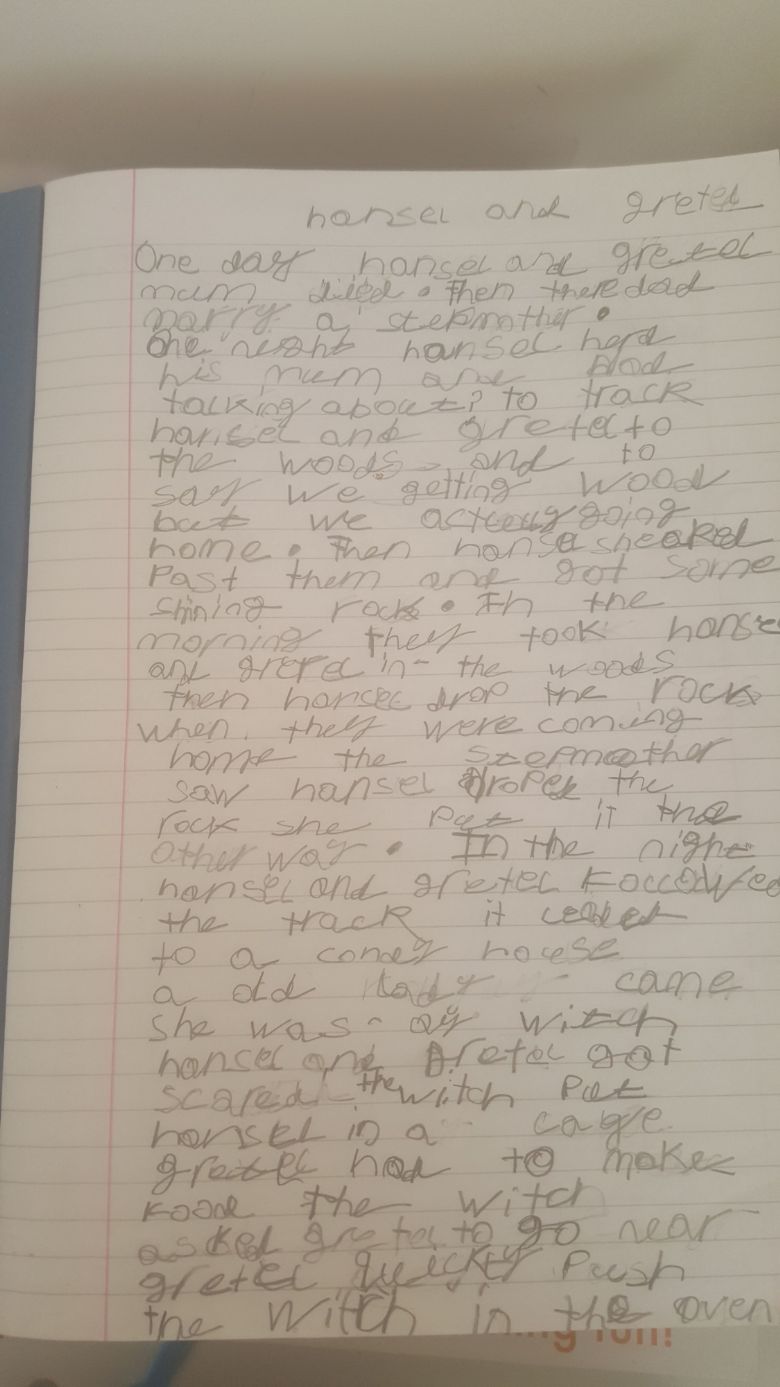 hansel and gretel
One day hansel and gretel
mum died. Then there dad
marry a stepmother.
One night hansel herd
his mum and Dad
talking about? to track
hansel and gretel to
the woods and to
say we getting wood
but we going
home. Then hansel sneaked
Past them and got some
shining rock. In the
morning they took hanse
and gretel in the woods
then hansel drop the rock
when they were coming
home the stepmother
saw hansel droped the
rock she Put it the
other way. In the night
hansel and gretel
the track it
to a house
a old lady came
she was a witch
hansel and gretel got
scared the witch Put
hansel in a cage
gretel had to make
food the witch
asked gretel to go near
gretel Push
the witch in the oven